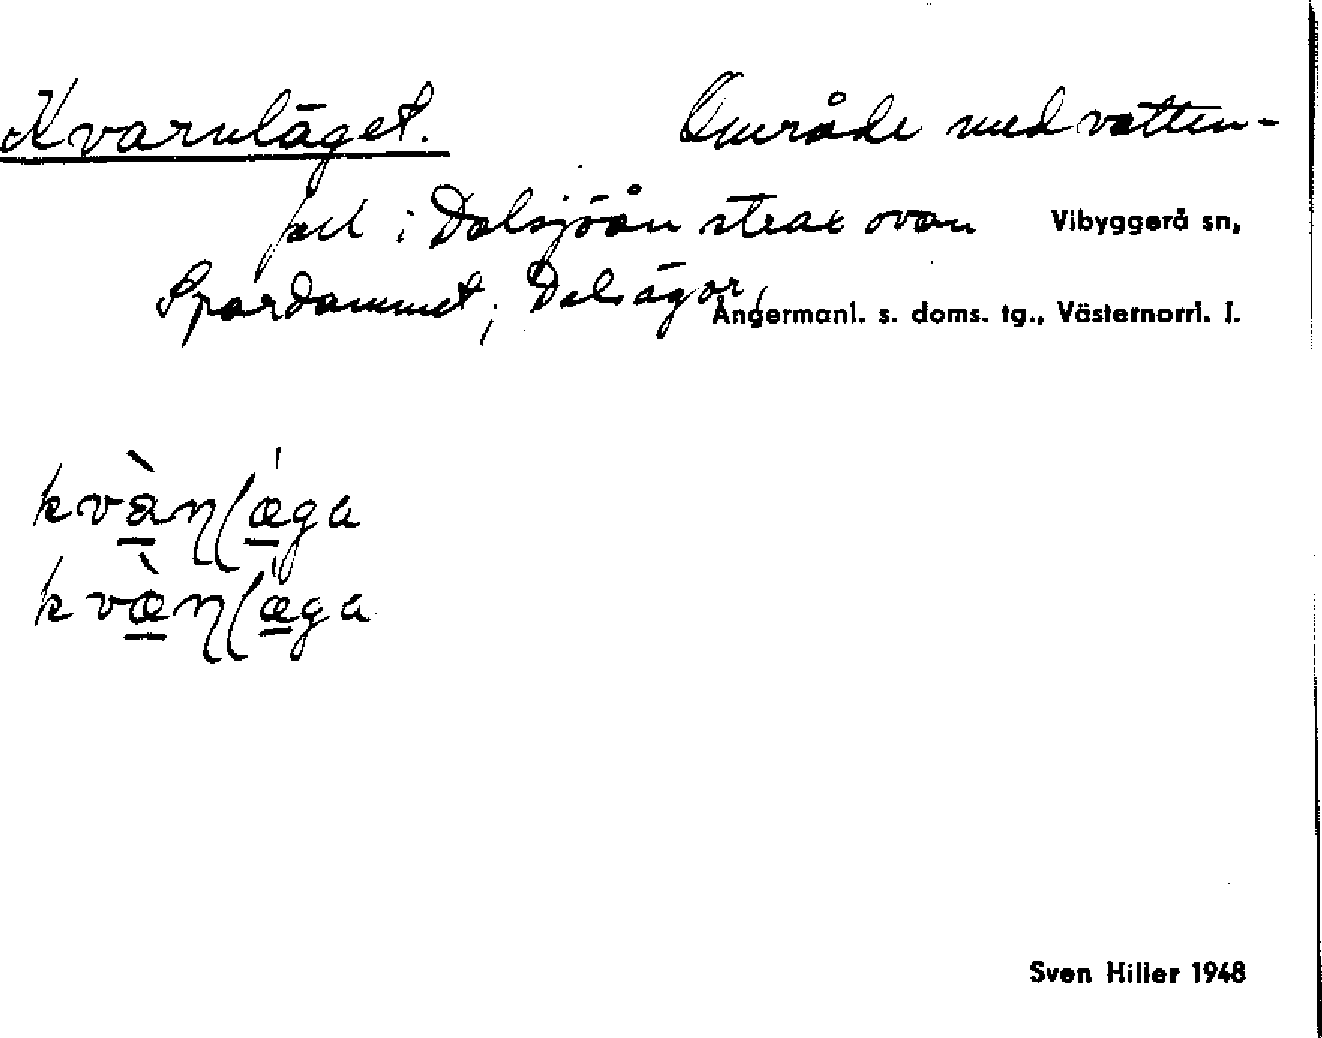 Kvarnläget. Område med vatten-
fall i Dalsjöån strax ovan Vibyggerå sn,
Spardammet; Dals ägor,
Ångermanl. s. doms. tg., Västernorrl. l.
kvànlæga
kvæ̀nlæga
Sven Hiller 1948